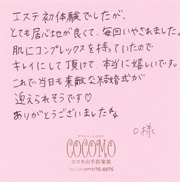 エステ初体験でしたが、
とても居心地が良くて、毎回いやされました。
肌にコンプレックスを持っていたので
キレイにして頂けて、本当に嬉しいです。
これで当日も素敵な結婚式が
迎えられそうです♡
ありがとうございましたね
O様
COCOMO
ココモ山手倶楽部
75-6875